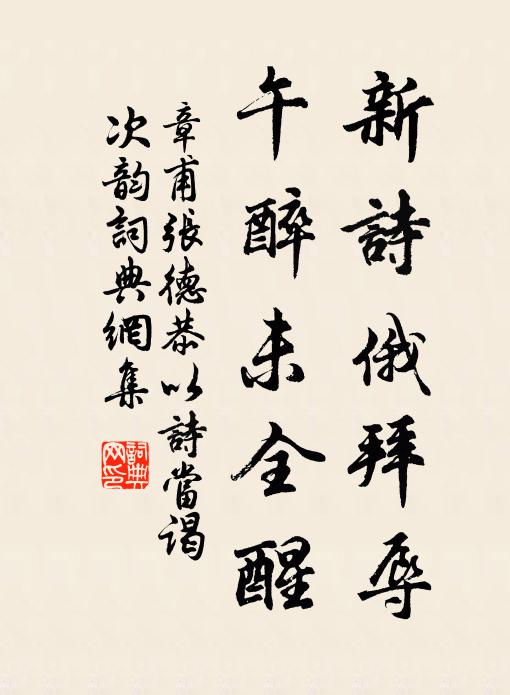 新詩俄拜辱
午醉未全醒
章甫張德恭以詩當謁
次韵詞典網集
詞典
网印